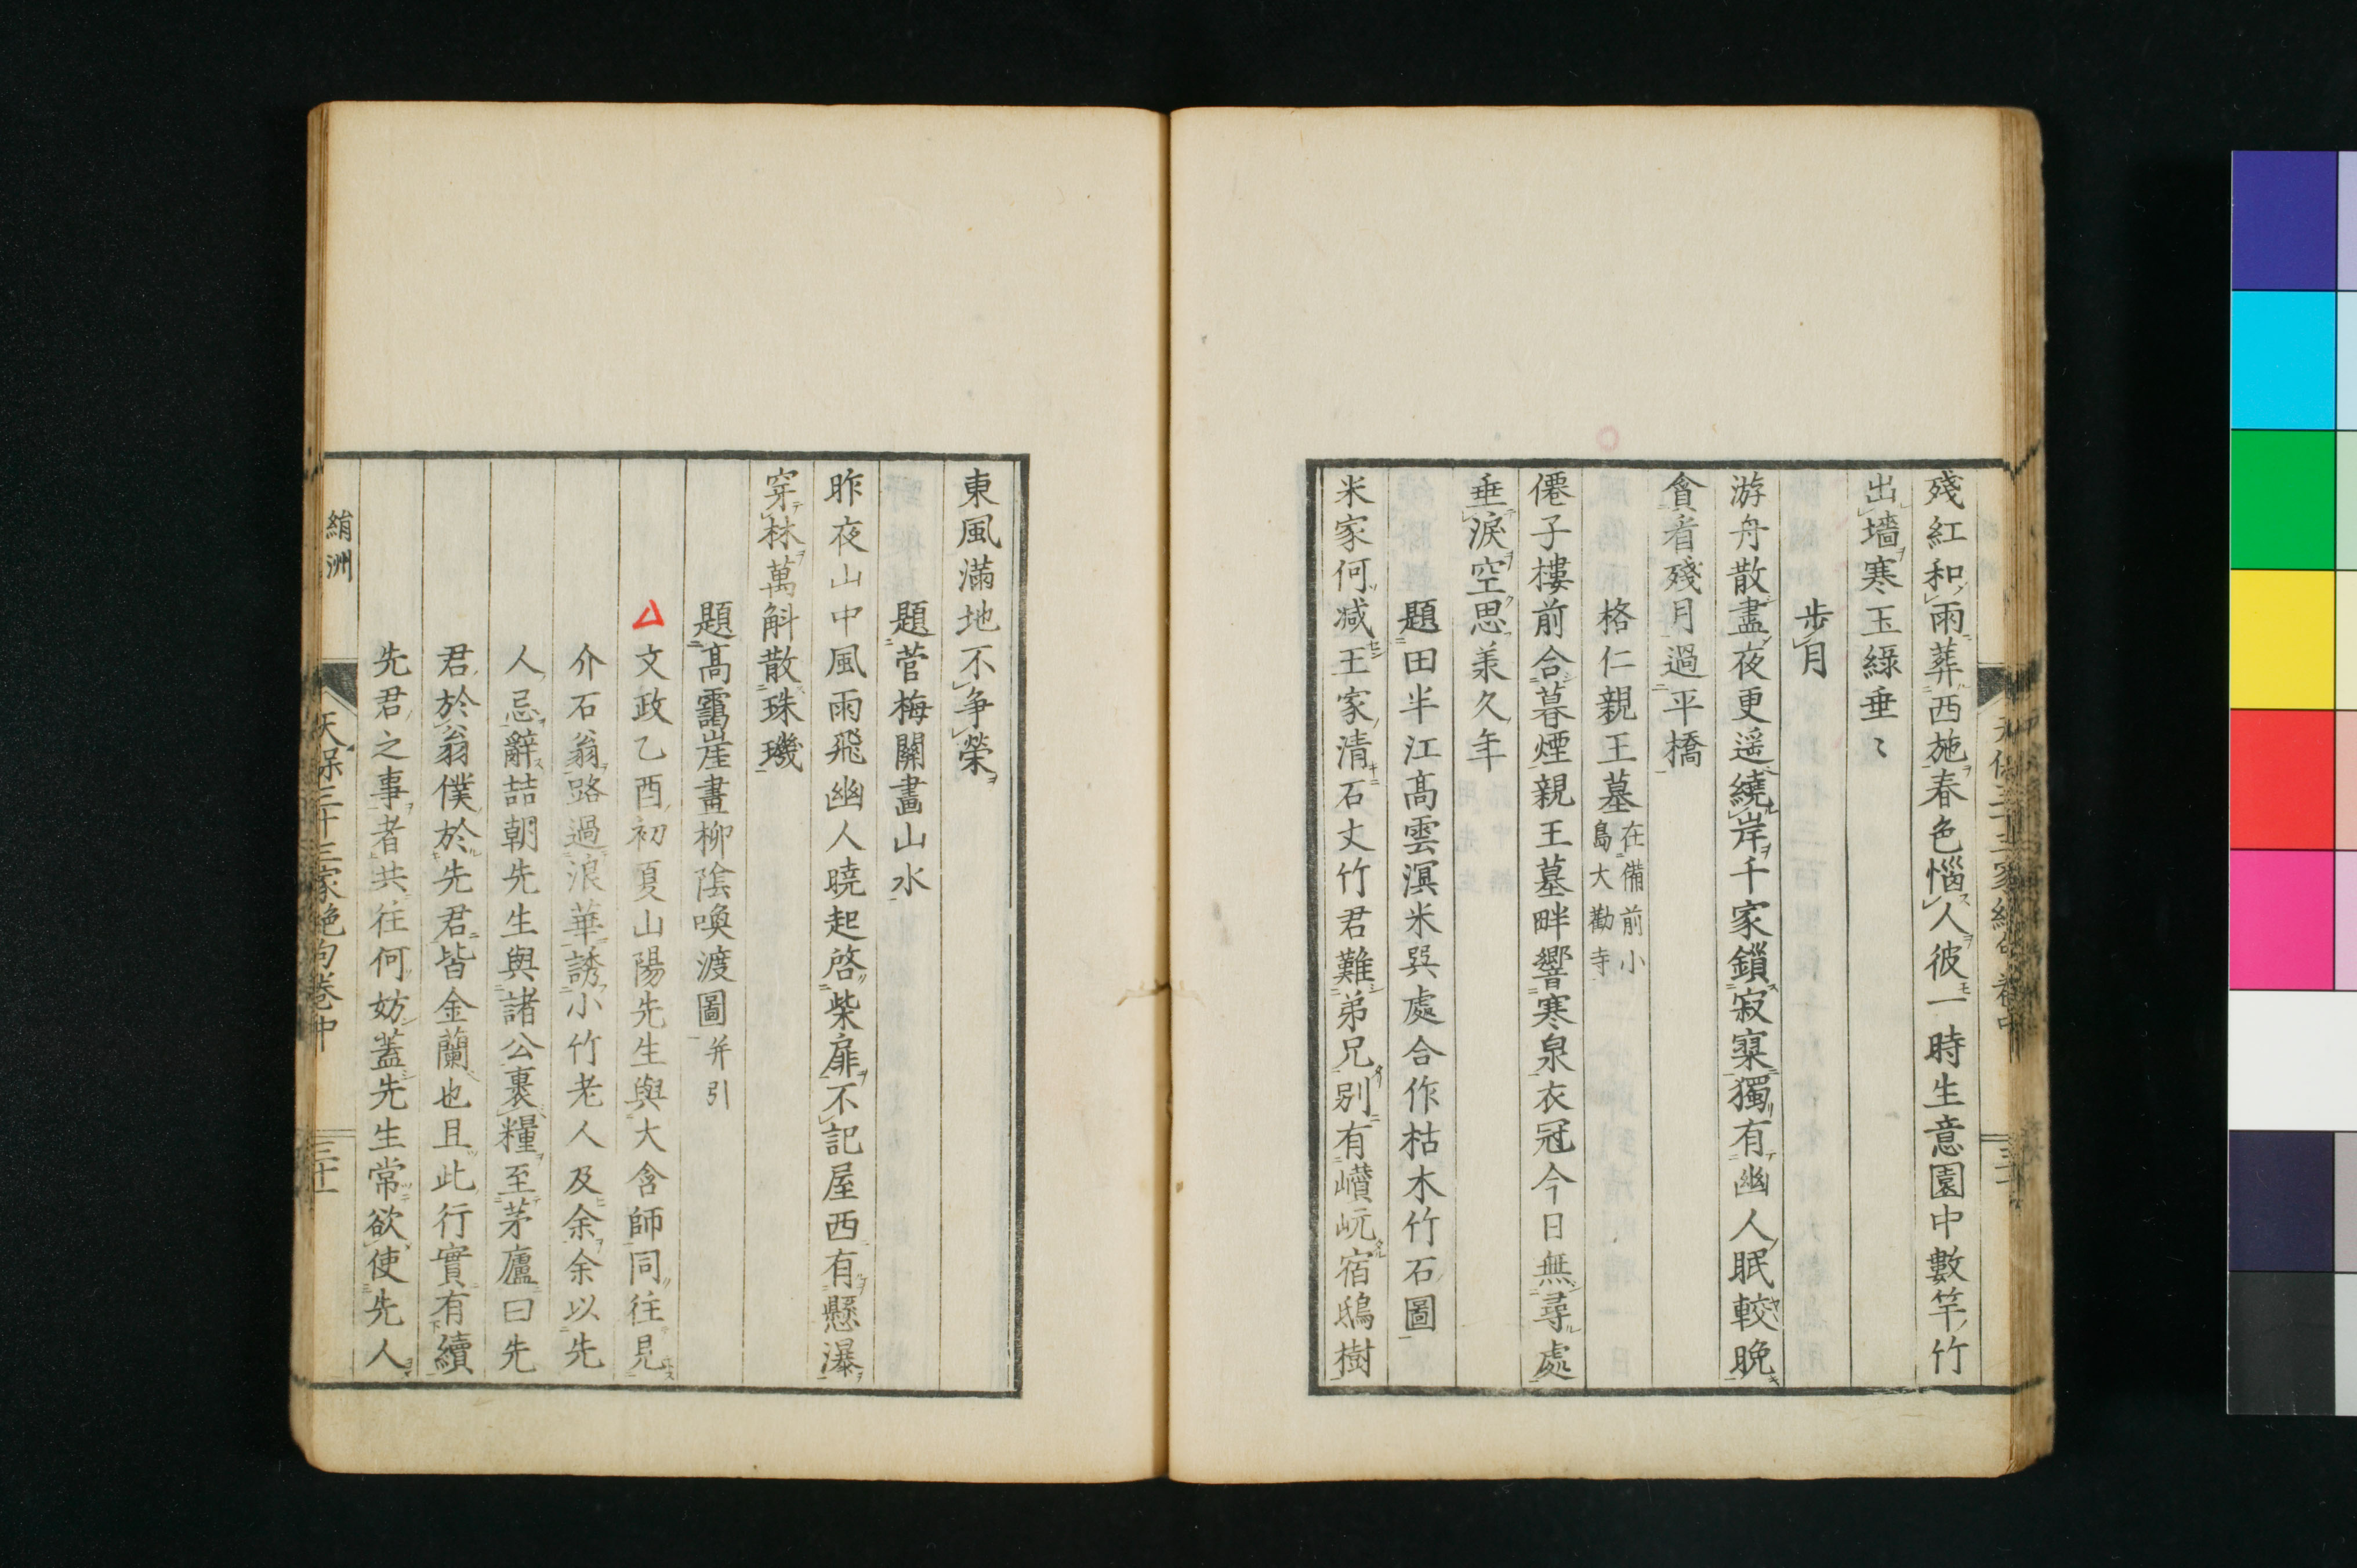 殘紅和雨葬西施春色惱人彼一時生意園中數竿竹
出墻寒玉綠垂〻
步月
游舟散盡夜更遥繞岸千家鎖寂寞獨有幽人眠較晚
貪看殘月過平橋
格仁親王墓在備前小島大勸寺
僊子樓前合暮煙親王墓畔響寒泉衣冠今日無尋處
垂淚空思羕久年
題田半江髙雲溟米巽處合作枯木竹石圖
米家何减王家清石丈竹君難弟兄别有巑岏宿鴟樹
東風滿地不争榮
題菅梅關畵山水
昨夜山中風雨飛幽人曉起啓柴扉不記屋西有懸瀑
穿林萬斛散珠璣
題髙靄崖畫柳陰喚渡圖并引
文政乙酉初夏山陽先生與大含師同往見
介石翁路過浪華誘小竹老人及余余以先
人忌辭喆朝先生與諸公裹糧至茅廬曰先
君於翁僕於先君皆金蘭也且此行實有續
先君之事者共往何妨蓋先生常欲使先人
絹洲
天保三十三家絶句卷中
三十一